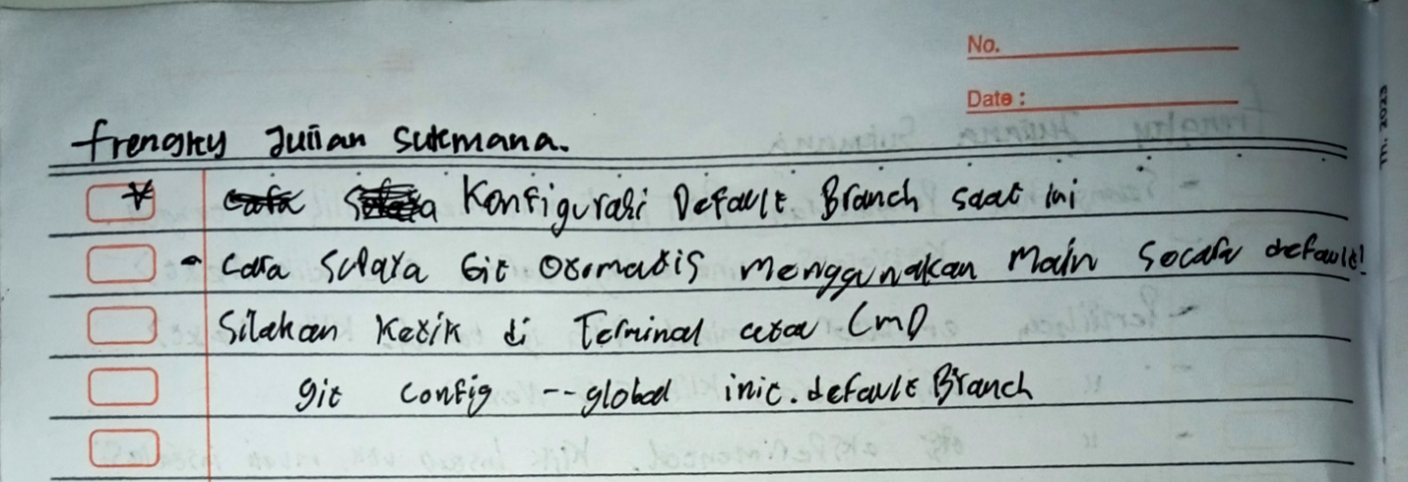 No.
Date :
Th. 2023
Frengky Julian Sukmana.
Konfigurasi Default Branch saat ini
- Cara Supaya Git Otomatis Menggunakan Main Secara default!
Silakan Ketik di Terminal atau CMD
git config --global init.default Branch